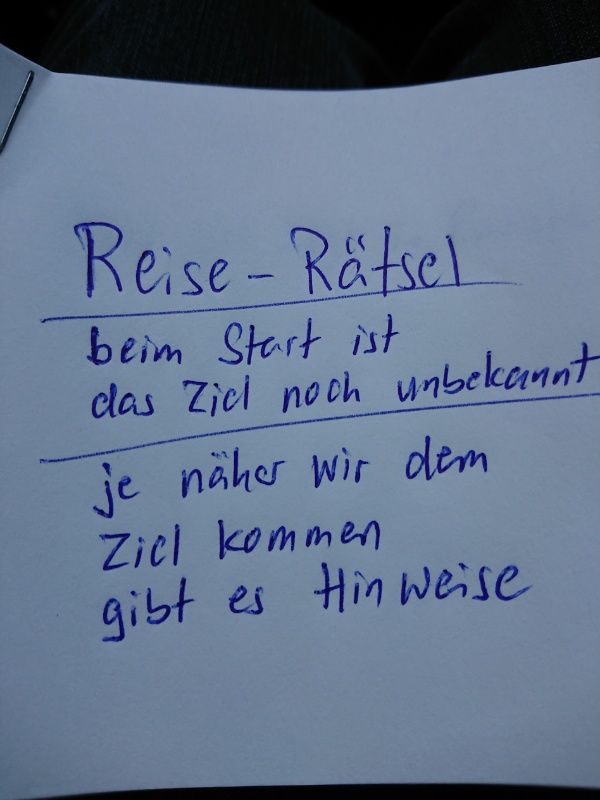 Reise-Rätsel
beim Start ist
das Ziel noch unbekannt
je näher wir dem
Ziel kommen
gibt es Hinweise